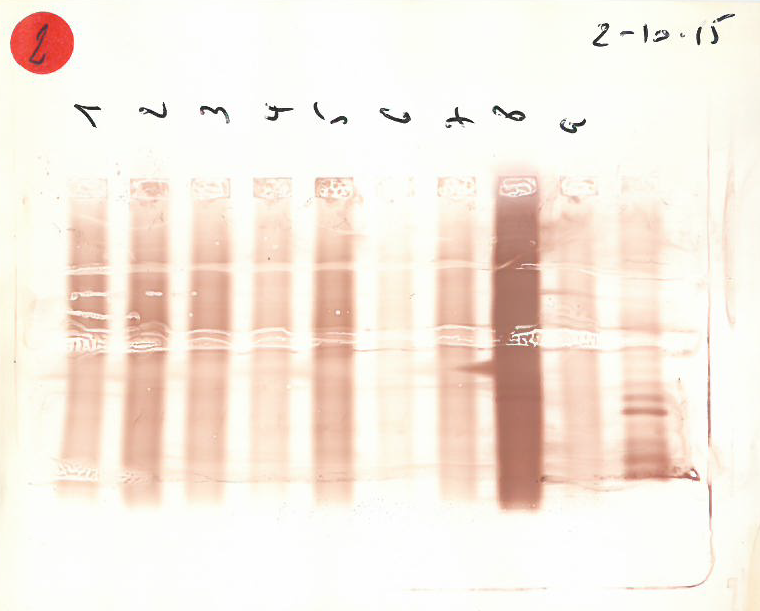 2
2-10.15
1 2 3 4 5 6 7 8 9